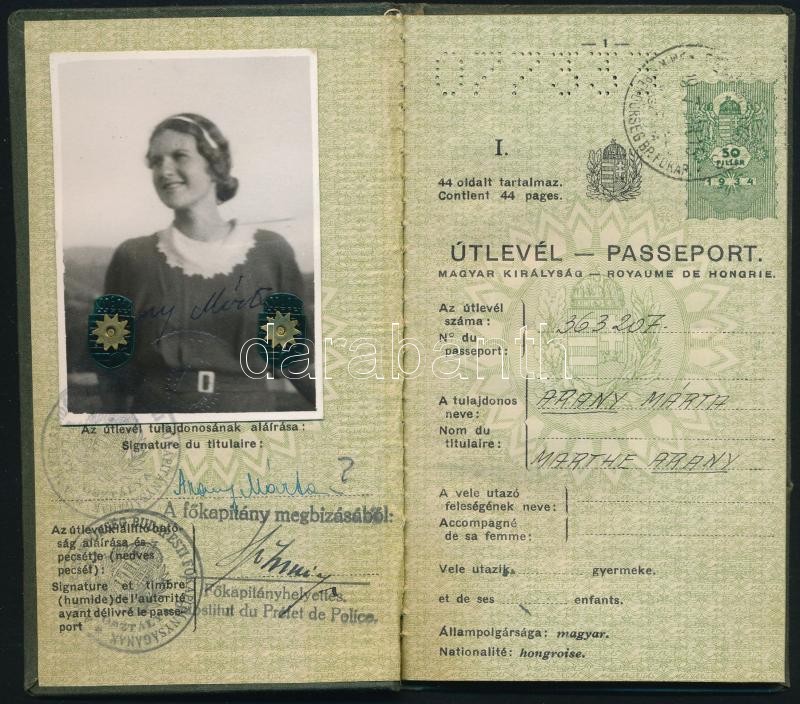 Arany Márta
Az útlevél tulajdonosának aláírása:
Signature du titulaire:
Arany Márta
A főkapitány megbizásából:
Az útlevélkiállító ható-
ság aláírása és
pecsétje (nedves
pecsét):
Signature et timbre
(humide) de l'autorité
ayant délivré le passe-
port
Főkapitányhelyettes.
Substitut du Préfet de Police.
— 1 —
I.
44 oldalt tartalmaz.
Contient 44 pages.
50
FILLÉR
1934
ÚTLEVÉL — PASSEPORT.
MAGYAR KIRÁLYSÁG — ROYAUME DE HONGRIE.
Az útlevél
száma:
Nº du
passeport:
363207.
A tulajdonos
neve:
Nom du
titulaire:
ARANY MÁRTA
MARTHE ARANY
A vele utazó
feleségének neve:
Accompagné
de sa femme:
Vele utazik gyermeke.
et de ses enfants.
Állampolgársága: magyar.
Nationalité: hongroise.
darabanth.com